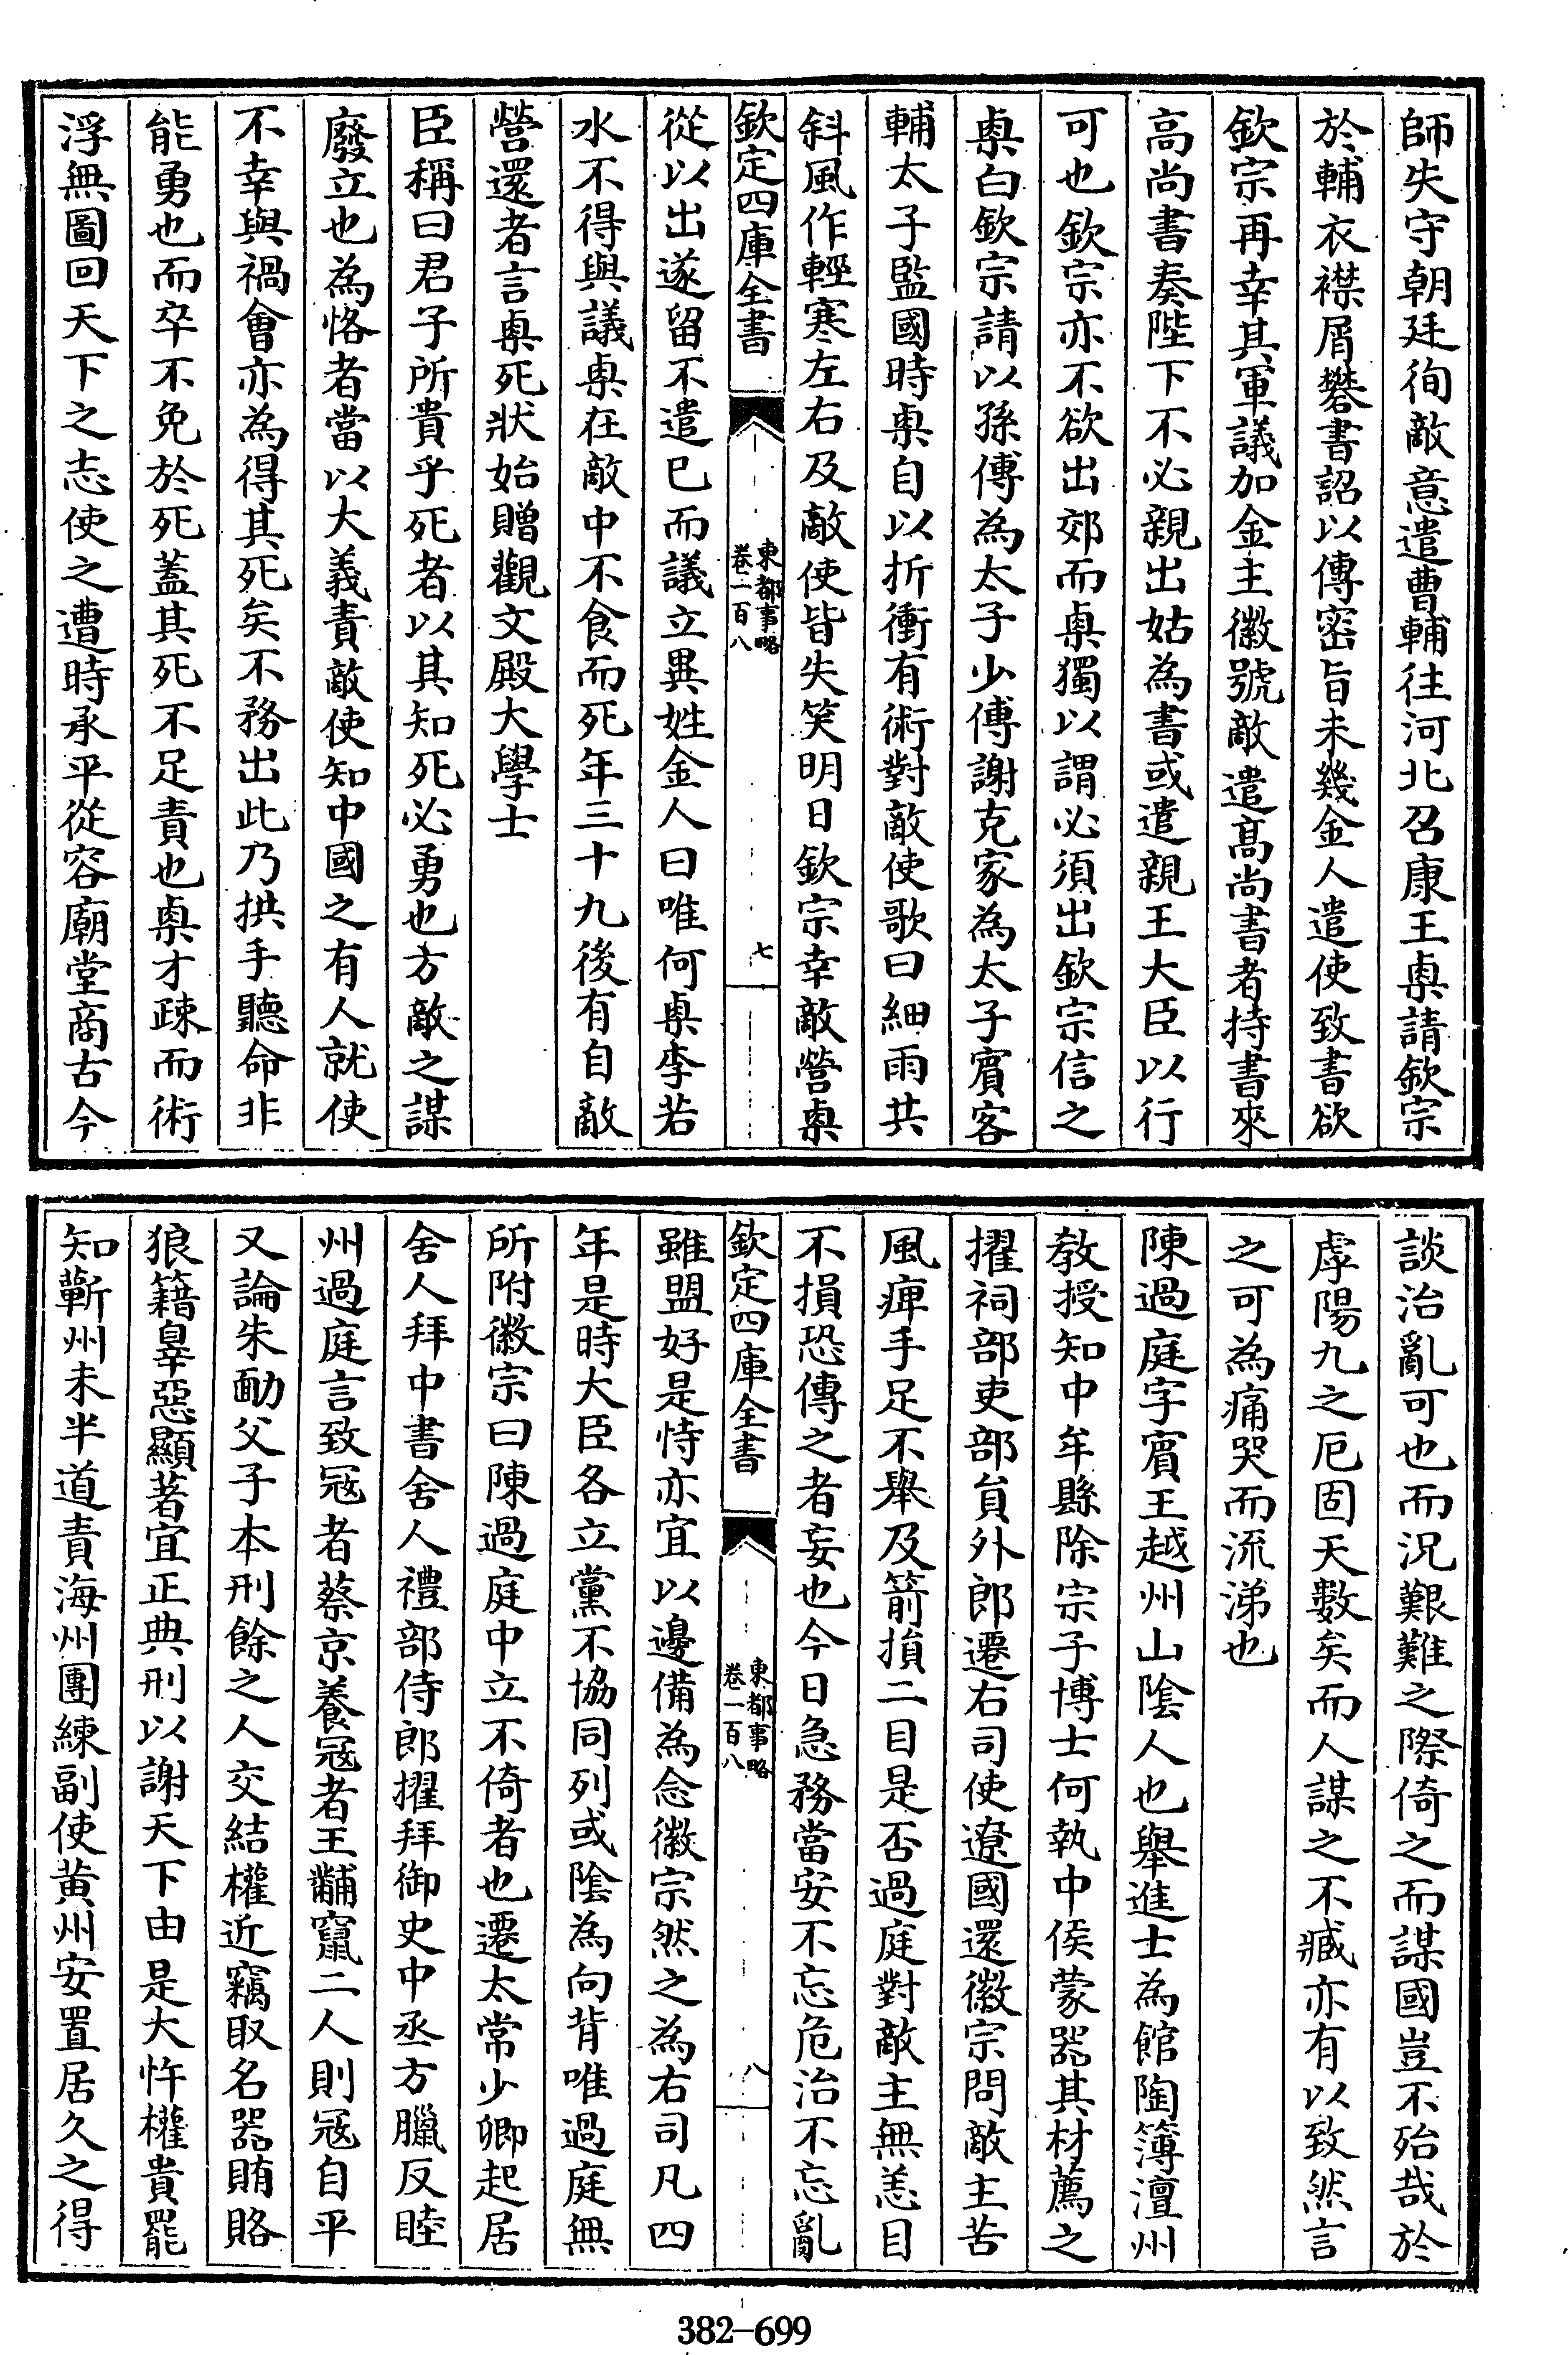 師失守朝廷徇敵意遣曹輔往河北召康王㮚請欽宗
於輔衣襟屑礬書詔以傳密旨未幾金人遣使致書欲
欽宗再幸其軍議加金主徽號敵遣髙尚書者持書來
高尚書奏陛下不必親出姑為書或遣親王大臣以行
可也欽宗亦不欲出郊而㮚獨以謂必須出欽宗信之
㮚白欽宗請以孫傅為太子少傅謝克家為太子賓客
輔太子監國時㮚自以折衝有術對敵使歌曰細雨共
斜風作輕寒左右及敵使皆失笑明日欽宗幸敵營㮚
欽定四庫全書
東都事略
卷一百八
七
從以出遂留不遣已而議立異姓金人曰唯何㮚李若
水不得與議㮚在敵中不食而死年三十九後有自敵
營還者言㮚死狀始贈觀文殿大學士
臣稱曰君子所貴乎死者以其知死必勇也方敵之謀
廢立也為恪者當以大義責敵使知中國之有人就使
不幸與禍會亦為得其死矣不務出此乃拱手聽命非
能勇也而卒不免於死蓋其死不足責也㮚才疎而術
浮無圖回天下之志使之遭時承平從容廟堂商古今
談治亂可也而況艱難之際倚之而謀國豈不殆哉於
虖陽九之厄固天數矣而人謀之不臧亦有以致然言
之可為痛哭而流涕也
陳過庭字賓王越州山隂人也舉進士為館陶簿澶州
教授知中牟縣除宗子博士何執中侯蒙器其材薦之
擢祠部吏部員外郎遷右司使遼國還徽宗問敵主苦
風痺手足不舉及箭損二目是否過庭對敵主無恙目
不損恐傳之者妄也今日急務當安不忘危治不忘亂
欽定四庫全書
東都事略
卷一百八
八
雖盟好是恃亦宜以邊備為念徽宗然之為右司凡四
年是時大臣各立黨不協同列或隂為向背唯過庭無
所附徽宗曰陳過庭中立不倚者也遷太常少卿起居
舍人拜中書舍人禮部侍郎擢拜御史中丞方臘反睦
州過庭言致冦者蔡京養冦者王黼竄二人則冦自平
又論朱勔父子本刑餘之人交結權近竊取名器賄賂
狼籍辠惡顯著宜正典刑以謝天下由是大忤權貴罷
知蘄州未半道責海州團練副使黄州安置居久之得
382-699